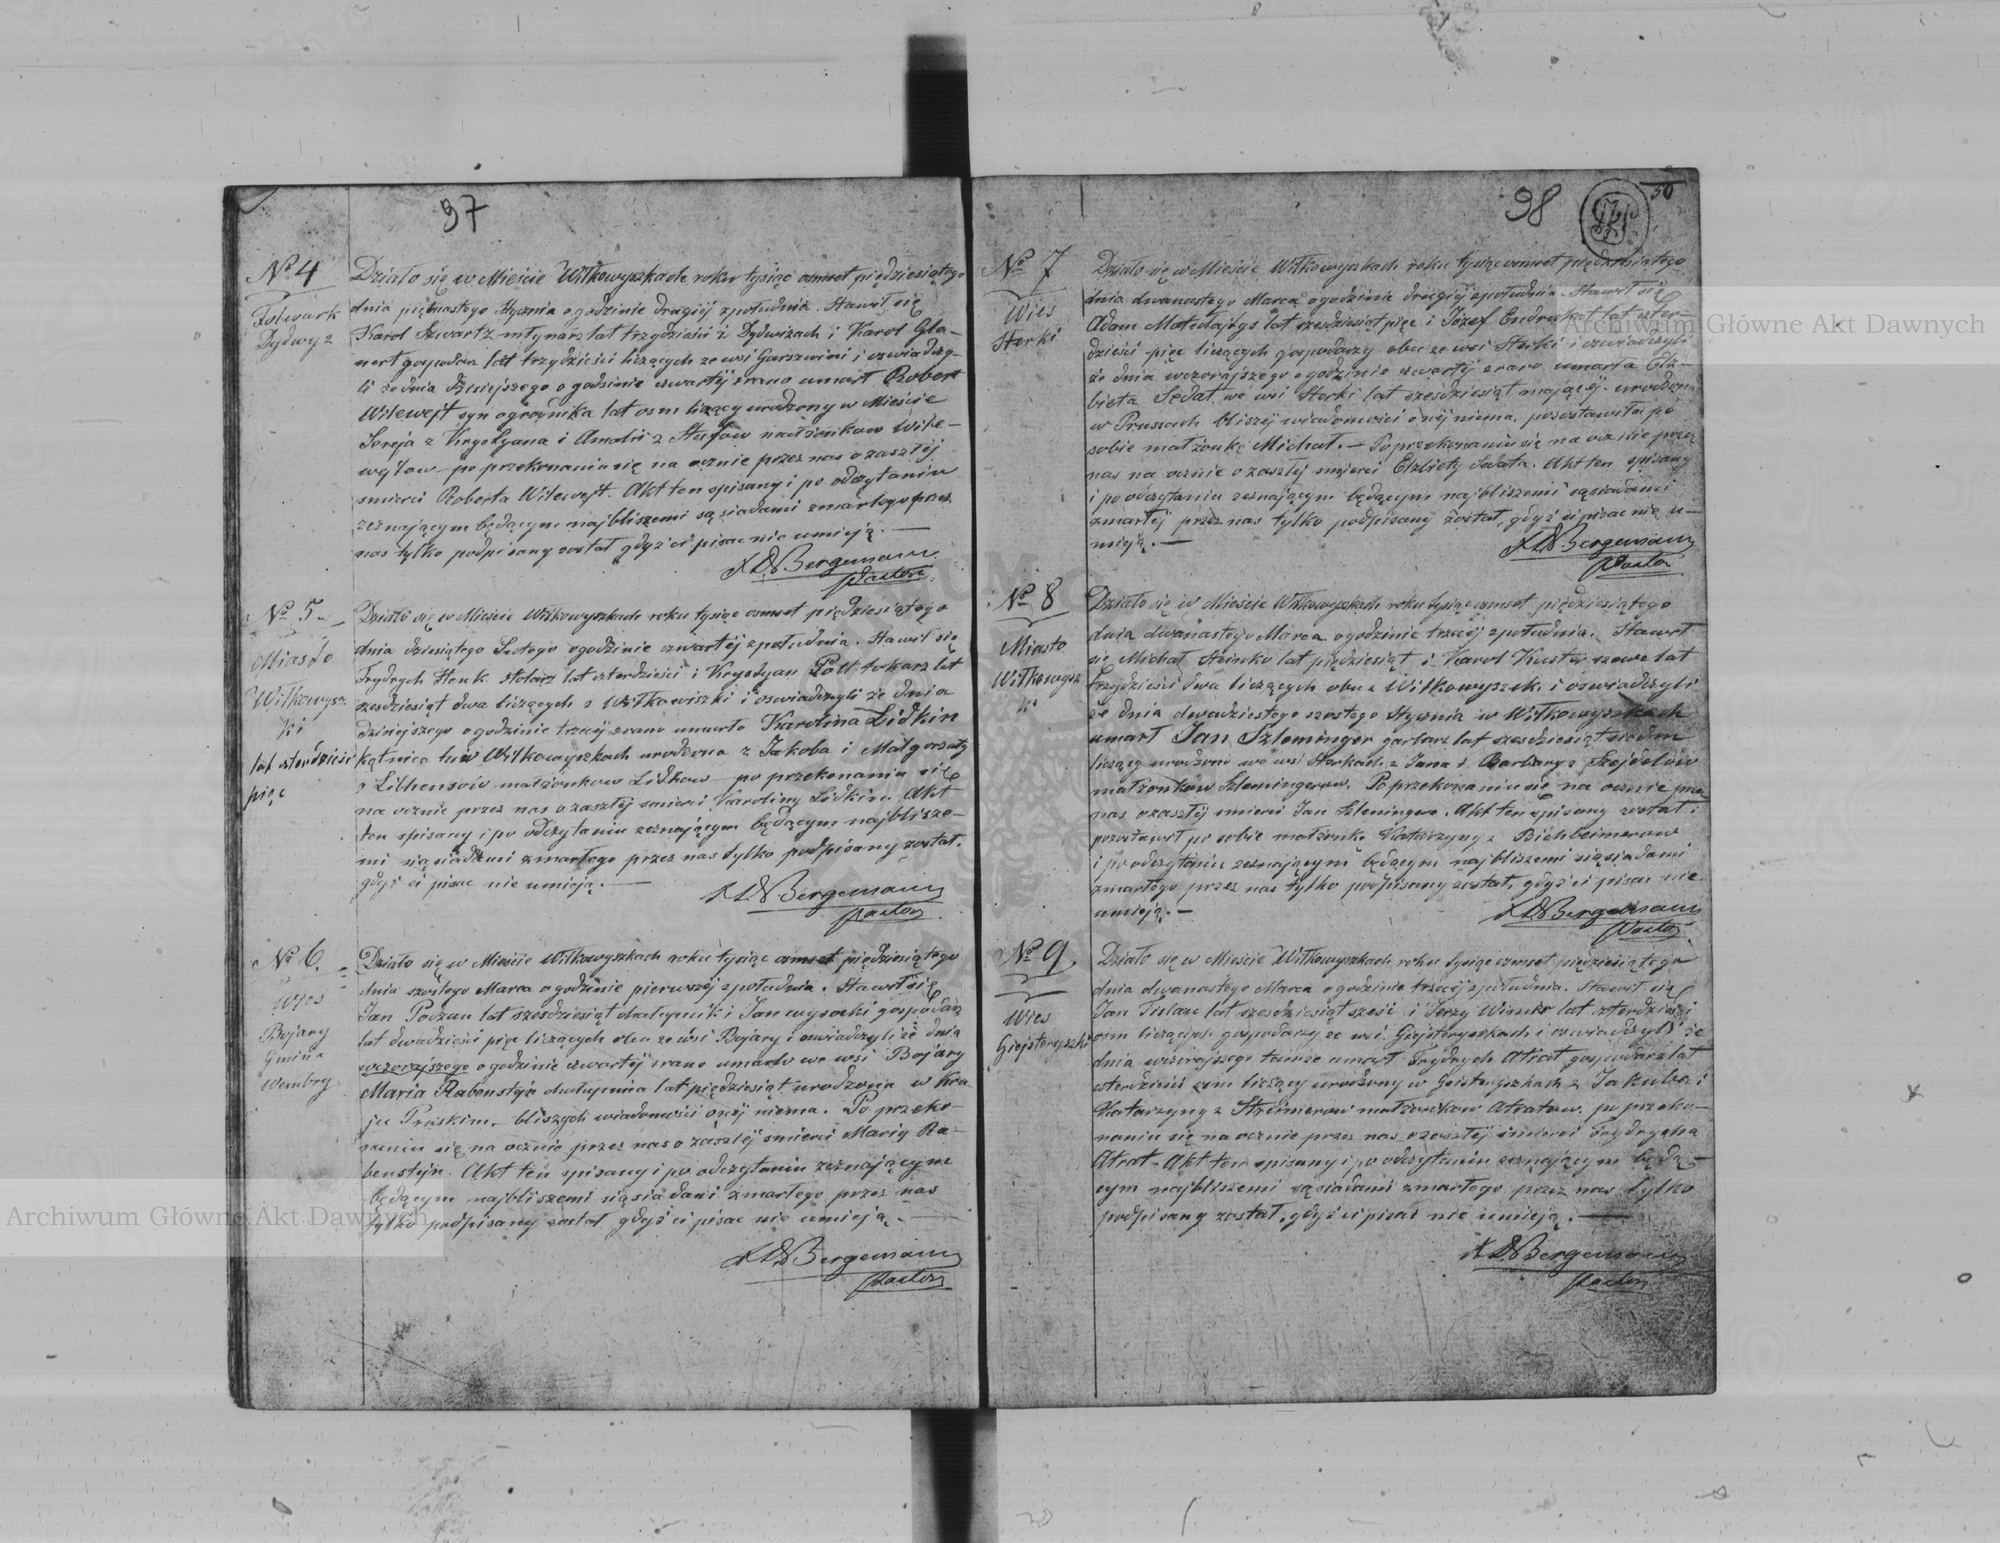 97
No 4
Folwark
Dydwyz
Działo się w Mieście Wiłkowyszkach roku tysiąc osmset pięździesiątego
dnia piętnastego Stycznia o godzinie drugiej z południa. Stawił się
Karol Szwartz młynarz lat trzydzieści z Dydwizach i Karol Gla-
nert gospodarz lat trzydzieści liczących ze wsi Garszwini i oswiadczy-
li że dnia dzisiejszego o godzinie czwartej z rana umarł Robert
Wilewejt syn ogrodnika lat osm liczący urodzony w Mieście
Sereja z Krystyana i Amalii z małżonkow Wile-
wejtow – po przekonaniu się na ocznie przez nas o zaszłej
smierci Roberta Wilewejt. Akt ten spisany i po odczytaniu
zeznającym będącym najbliszemi sąsiadami zmarłego przez
nas tylko podpisany został gdyż ci pisac nie umieją. —
Bergemann
Pastor
No 5
Miasto
Wiłkowysz
ki
lat czterdzieści
pięc
Działo się w Mieście Wiłkowyszkach roku tysiąc osmset pięździesiątego
dnia dziesiątego Lutego o godzinie czwartej z południa. Stawil się
Frydrych Henk stolarz lat czterdzieści i Krystyan Poll tokarz lat
szesdziesiąt dwa liczących z Wiłkowiszki i oswiadczyli że dnia
dzisiejszego o godzinie trzeciej z rana umarła Karolina Lidkin
kątnica tu w Wiłkowyszkach urodzona z Jakoba i Małgorzaty
z małżonkow Lidkow – po przekonaniu się
na ocznie przez nas o zaszłej smierci Karoliny Lidkin. Akt
ten spisany i po odczytaniu zeznającym będącym najblisze-
mi sąsiadami zmarłego przez nas tylko podpisany został.
gdyż ci pisac nie umieją. —
Bergemann
Pastor
No 6.
Wies
Bojary
Gmina
Działo się w Mieście Wiłkowyszkach roku tysiąc osmset pięździesiątego
dnia szostego Marca o godzinie pierwszej z południa. Stawił się
Jan Poczun lat szesdziesiąt chałupnik i Jan wysocki gospodarz
lat dwadzieści pięc liczących oba ze wsi Bojary i oswiadczyli że dnia
wczorajszego o godzinie czwartej z rana umarła we wsi Bojary
Maria Rabenstejn chałupnica lat pięździesiąt urodzona w Kra
ju Pruskim, bliszych wiadomości o niej niema. Po przeko-
naniu się na ocznie przez nas o zaszłej smierci Marii Ra-
benstejn. Akt ten spisany i po odczytaniu zeznającym
będącym najbliszemi sąsiadami zmarłego przez nas
tylko podpisany został gdyż ci pisac nie umieją. —
Bergemann
Pastor
98
50
No 7
Wies
Sterki
Działo się w Mieście Wiłkowyszkach roku tysiąc osmset pięździesiątego
dnia dwanastego Marca o godzinie drugiej z południa. Stawił się
Adam lat szesdziesiąt pięc i Józef Endruckat lat czter-
dzieści pięc liczących gospodarzy obu ze wsi Sterki i oswiadczyli
że dnia wczorajszego o godzinie czwartej z rana umarła Elz-
bieta Sedat we wsi Sterki lat szesdziesiąt mającej urodzona
w Prusach bliszej wiadomości o niej niema, pozostawiła po
sobie małżonka Michał. — Po przekonaniu się na ocznie przez
nas na ocznie o zaszłej smierci Elzbiety Sedata. Akt ten spisany
i po odczytaniu zeznającym będącym najbliszemi sąsiadami
zmarłej przez nas tylko podpisany został, gdyż ci pisac nie u-
mieją. —
Bergemann
Pastor
No 8
Miasto
Wiłkowysz
ki
Działo się w Mieście Wiłkowyszkach roku tysiąc osmset pięździesiątego
dnia dwanastego Marca o godzinie trzeciej z południa. Stawił
się Michał Steinke lat pięździesiąt i Karol Kuster szewc lat
trzydzieści dwa liczących obu z Wiłkowyszek i oswiadczyli
że dnia dwadziestego szostego Stycznia w Wiłkowyszkach
umarł Jan Szleminger garbarz lat szesdziesiąt siedm
liczący urodzony we wsi Sterkach z Jana i Barbary z Szejdelow
małżonkow Szlemingerow. Po przekonaniu się na ocznie przez
nas o zaszłej smierci Jan Szleningera. Akt ten spisany został i
pozostawił po sobie małżonkę Katarzyny z
i po odczytaniu zeznającym będącym najbliszemi sąsiadami
zmarłego przez nas tylko podpisany został, gdyż ci pisac nie
umieją. —
Bergemann
Pastor
No 9.
Wies
Giejsteryszki
Działo się w Mieście Wiłkowyszkach roku tysiąc osmset pięździesiątego
dnia dwanastego Marca o godzinie trzeciej z południa. Stawił się
Jan lat szesdziesiąt sześć i Jerzy lat czterdzieści
osm liczących gospodarzy ze wsi Giejsteryszkach i oswiadczyli że
dnia wczorajszego tamże umarł Frydrych Atrat gospodarz lat
czterdzieści osm liczący urodzony w Geisteryszkach z Jakuba i
Katarzyny z małżonkow Atratow. po przeko-
naniu się na ocznie przez nas o zaszłej smierci Frydrycha
Atrat – Akt ten spisany i po odczytaniu zeznającym będą-
cym najbliszemi sąsiadami zmarłego przez nas tylko
podpisany został, gdyż ci pisac nie umieją. —
Bergemann
Pastor
Archiwum Główne Akt Dawnych
Archiwum Główne Akt Dawnych